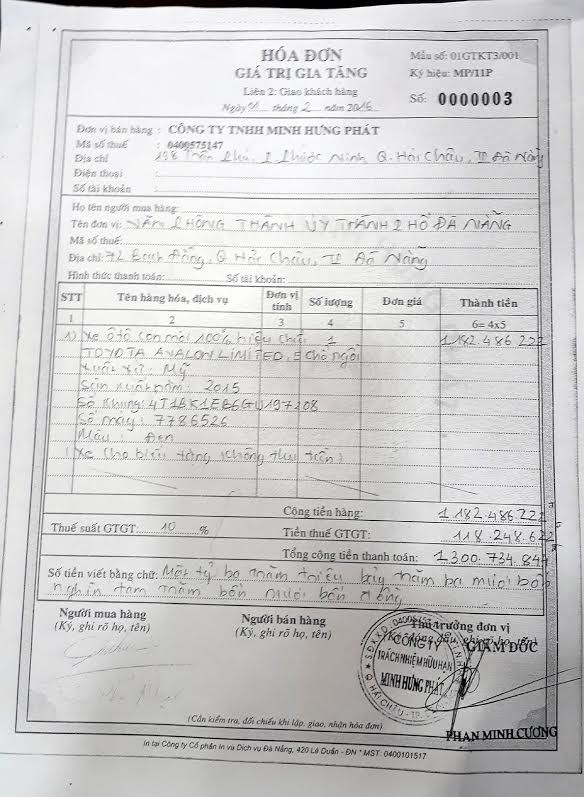 HÓA ĐƠN
GIÁ TRỊ GIA TĂNG
Liên 2: Giao khách hàng
Ngày 01 tháng 2 năm 2016
Mẫu số: 01GTKT3/001
Ký hiệu: MP/11P
Số: 0000003
Đơn vị bán hàng : CÔNG TY TNHH MINH HƯNG PHÁT
Mã số thuế : 0400575147
Địa chỉ 198 Trần Phú, P. Phước Ninh Q. Hải Châu, TP Đà Nẵng
Điện thoại :
Số tài khoản :
Họ tên người mua hàng:
Tên đơn vị: VĂN PHÒNG THÀNH ỦY THÀNH PHỐ ĐÀ NẴNG
Mã số thuế:
Địa chỉ: 72 Bạch Đằng, Q Hải Châu, TP Đà Nẵng
Hình thức thanh toán: Số tài khoản:
STT Tên hàng hóa, dịch vụ Đơn vị tính Số lượng Đơn giá Thành tiền
1 2 3 4 5 6= 4x5
1) Xe ôtô con mới 100% hiệu chữ 1 1.182.486.222
TOYOTA AVALON LIMITED, 5 chỗ ngồi
Xuất xứ : Mỹ
Sản xuất năm : 2015
Số khung: 4T1BK1EB6GU197208
Số máy : 7786526
Màu : Đen
(Xe cho biếu tặng không thu tiền)
Cộng tiền hàng: 1.182.486.222
Thuế suất GTGT: 10 % Tiền thuế GTGT: 118.248.622
Tổng cộng tiền thanh toán: 1.300.734.844
Số tiền viết bằng chữ: Một tỷ ba trăm triệu bảy trăm ba mươi bốn
nghìn tám trăm bốn mươi bốn đồng
Người mua hàng
(Ký, ghi rõ họ, tên)
Người bán hàng
(Ký, ghi rõ họ, tên)
Thủ trưởng đơn vị
(Ký, đóng dấu, ghi rõ họ, tên)
GIÁM ĐỐC
CÔNG TY
TRÁCH NHIỆM HỮU HẠN
MINH HƯNG PHÁT
Q. HẢI CHÂU - TP.
PHAN MINH CƯƠNG
(Cần kiểm tra, đối chiếu khi lập, giao, nhận hóa đơn)
In tại Công ty Cổ phần In và Dịch vụ Đà Nẵng, 420 Lê Duẩn - ĐN * MST: 0400101517